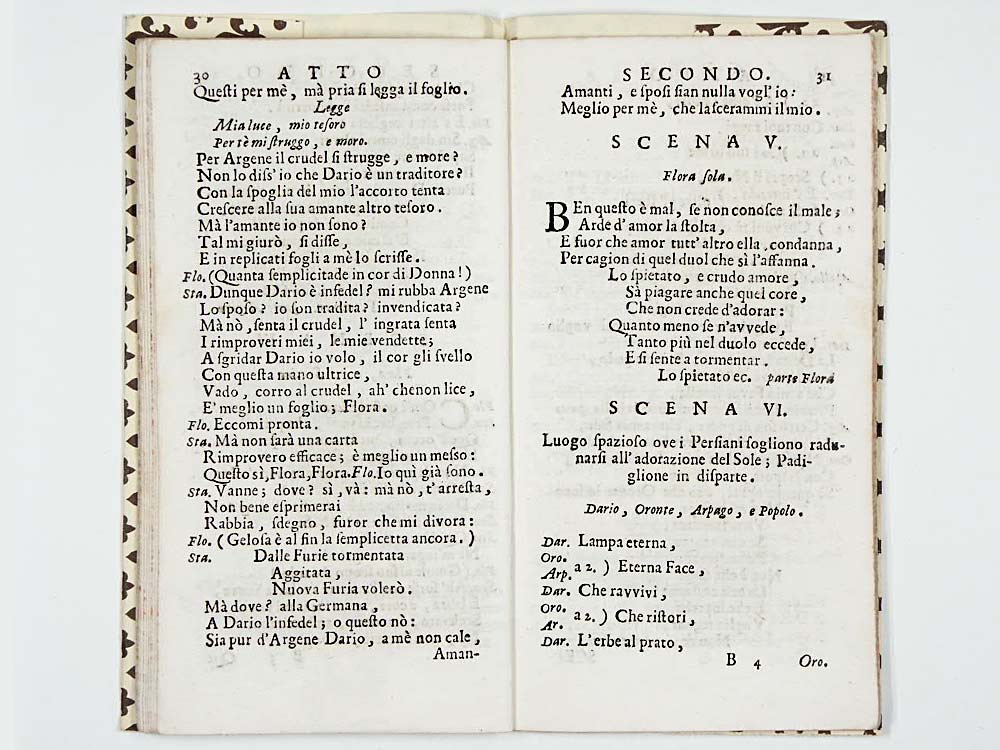 30 ATTO
Questi per mè, mà pria si legga il foglio.
Legge
Mia luce, mio tesoro
Per tè mi struggo, e moro.
Per Argene il crudel si strugge, e more?
Non lo diss' io che Dario è un traditore?
Con la spoglia del mio l'accorto tenta
Crescere alla sua amante altro tesoro.
Mà l'amante io non sono?
Tal mi giurò, si disse,
E in replicati fogli a mè lo scrisse.
Flo. (Quanta semplicitade in cor di Donna!)
Sta. Dunque Dario è infedel? mi rubba Argene
Lo sposo? io son tradita? invendicata?
Mà nò, senta il crudel, l' ingrata senta
I rimproveri miei, le mie vendette;
A sgridar Dario io volo, il cor gli svello
Con questa mano ultrice,
Vado, corro al crudel, ah' che non lice,
E' meglio un foglio; Flora.
Flo. Eccomi pronta.
Sta. Mà non sarà una carta
Rimprovero efficace; è meglio un messo:
Questo sì, Flora, Flora. Flo. Io quì già sono.
Sta. Vanne; dove? sì, và: mà nò, t'arresta,
Non bene esprimerai
Rabbia, sdegno, furor che mi divora:
Flo. (Gelosa è al fin la semplicetta ancora.)
Sta. Dalle Furie tormentata
Aggitata,
Nuova Furia volerò.
Mà dove? alla Germana,
A Dario l'infedel; o questo nò:
Sia pur d'Argene Dario, a mè non cale,
Aman-
SECONDO. 31
Amanti, e sposi sian nulla vogl' io:
Meglio per mè, che lascerammi il mio.
SCENA V.
Flora sola.
BEn questo è mal, se non conosce il male;
Arde d'amor la stolta,
E fuor che amor tutt' altro ella condanna,
Per cagion di quel duol che sì l'affanna.
Lo spietato, e crudo amore,
Sà piagare anche quel core,
Che non crede d'adorar:
Quanto meno se n'avvede,
Tanto più nel duolo eccede,
E si sente a tormentar.
Lo spietato ec. parte Flora
SCENA VI.
Luogo spazioso ove i Persiani sogliono radu-
narsi all'adorazione del Sole; Padi-
glione in disparte.
Dario, Oronte, Arpago, e Popolo.
Dar. Lampa eterna,
Oro.
Arp. a 2. ) Eterna Face,
Dar. Che ravvivi,
Oro.
Ar. a 2. ) Che ristori,
Dar. L'erbe al prato,
B 4 Oro.